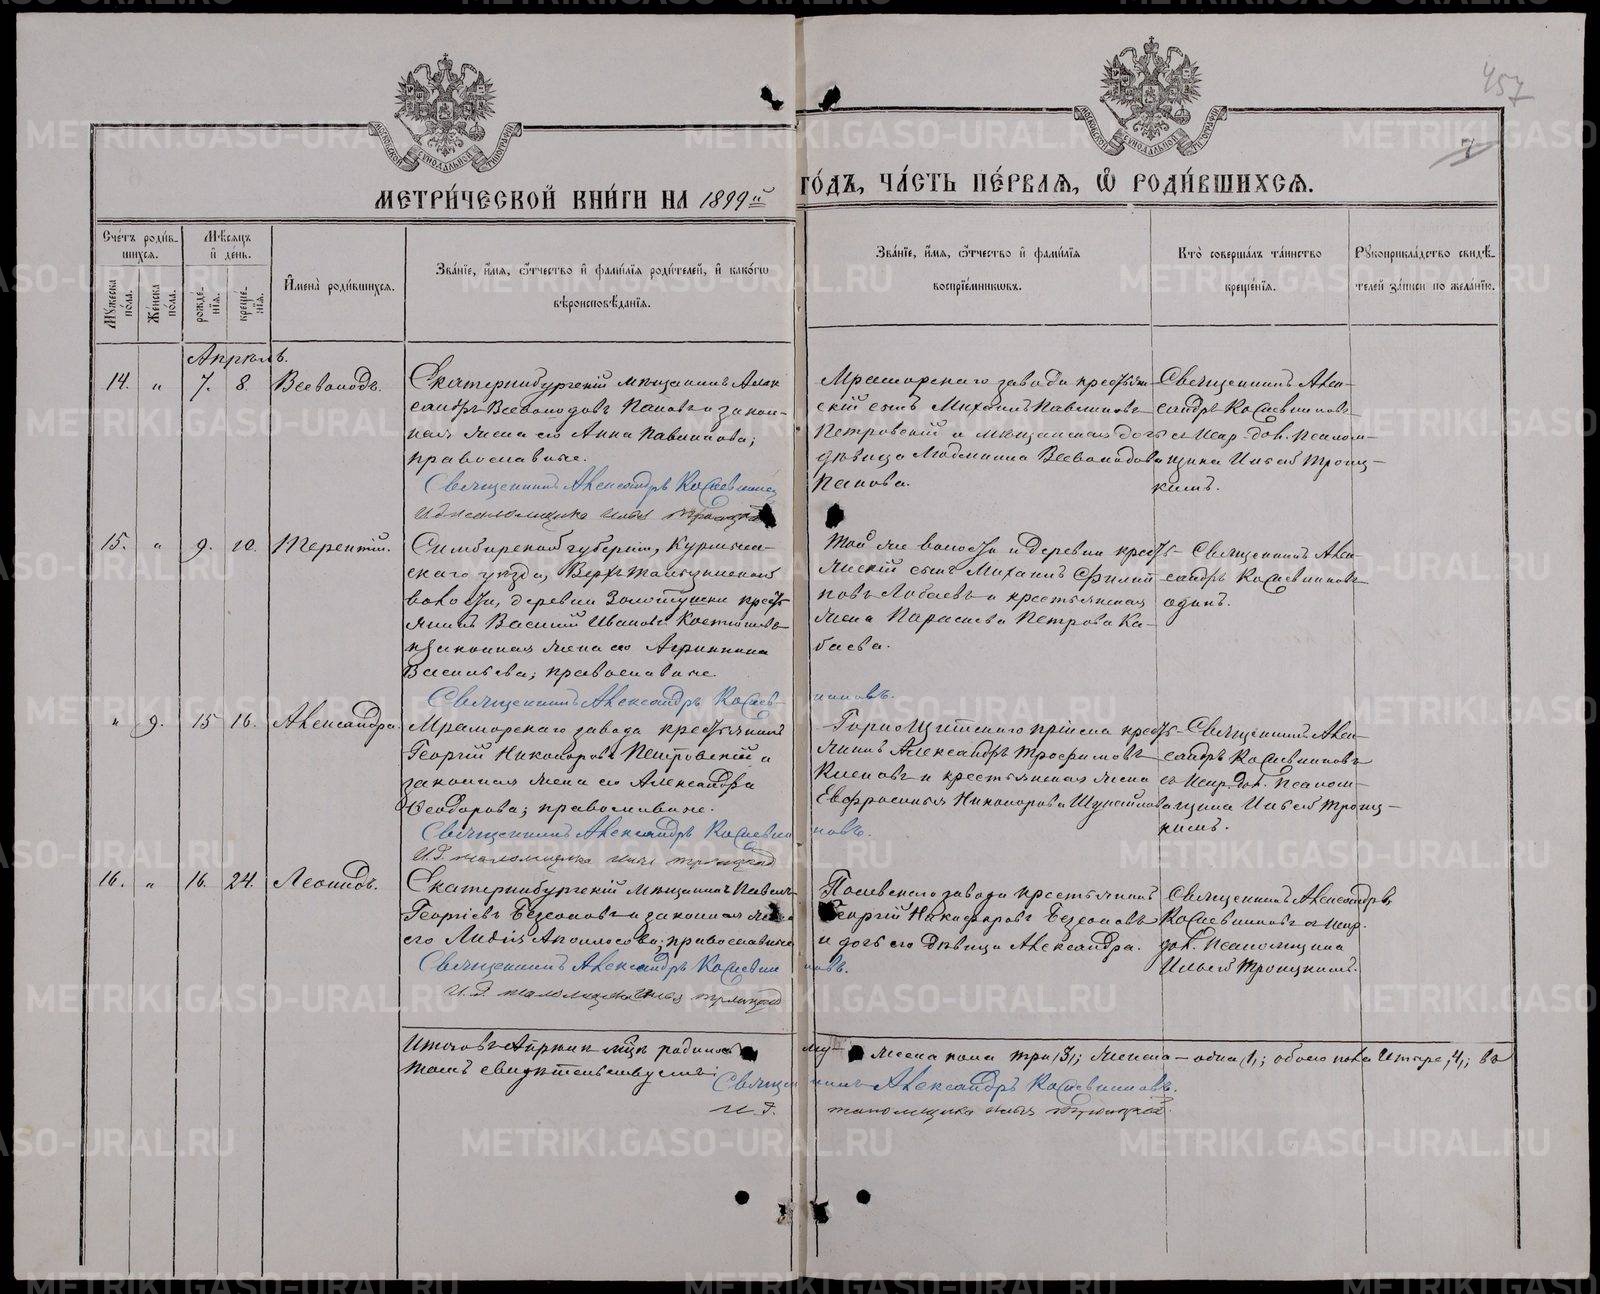 457
7
МОСКОВСКОЙ СѴНОДАЛЬНОЙ ТИПОГРАФІИ
МОСКОВСКОЙ СѴНОДАЛЬНОЙ ТИПОГРАФІИ
МЕТРИ́ЧЕСКОЙ КНИ́ГИ НА 1899й ГО́ДЪ, ЧА́СТЬ ПЕ́РВАЯ, Ѿ РОДИ́ВШИХСЯ.
Сче́тъ роди́в-
шихся.
Мꙋжеска по́ла.
Же́нска по́ла.
Мѣсяцъ и день.
рожде́нія.
креще́нія.
Имена̀ роди́вшихся.
Зва́ніе, и́мя, о́тчество и фами́лія роди́телей, и како́гѡ
вѣроисповѣ́данія.
Зва́ніе, и́мя, о́тчество и фами́лія
воспріе́мниковъ.
Кто̀ соверша́лъ та́инство
креще́нія.
Рꙋкоприкла́дство свидѣ́-
телей за́писи по жела́нію.
Апрѣль.
14. " 7. 8. Всеволодъ.
Екатеринбургскій мѣщанинъ Алек
сандръ Всеволодовъ Пановъ и закон-
ная жена его Анна Павлинова;
православные.
Священникъ Александръ
И.д. псаломщика Илья Троицкій
Мраморскаго завода крестьян
скій сынъ Михаилъ Павлиновъ
Петровскій и мѣщанская дочь
дѣвица Людмила Всеволодова
Панова.
Священникъ Алек-
сандръ
съ испр. дол. псалом-
щика Ильей Троиц-
кимъ.
15. " 9. 10. Терентій.
Симбирской губерніи, Курмыш-
скаго уѣзда,
волости, деревни кресть
янинъ Василій Ивановъ
и законная жена его Агриппина
Васильева; православные.
Священникъ Александръ
Той же волости и деревни кресть-
янскій сынъ Михаилъ Филип
повъ и крестьянская
жена Параскева Петрова Ка-
баева.
Священникъ Алек-
сандръ
одинъ.
" 9. 15 16. Александра
Мраморскаго завода крестьянинъ
Георгій Никаноровъ Петровскій и
законная жена его Александра
Ѳеодорова; православные.
Священникъ Александръ
И.д. псаломщика Илья Троицкій
Горнощитскаго кресть-
янинъ Александръ Трофимовъ
и крестьянская жена
Евфросинія Никанорова
Священникъ Алек-
сандръ
съ испр. дол. псалом-
щика Ильей Троиц-
кимъ.
16. " 16. 24. Леонидъ.
Екатеринбургскій мѣщанинъ Павелъ
Георгіевъ Безсоновъ и законная жена
его Лидія Аполлосова; православные
Священникъ Александръ
И.д. псаломщика Илья Троицкій
Полевскаго завода крестьянинъ
Георгій Никифоровъ Безсоновъ
и дочь его дѣвица Александра.
Священникъ Александръ
съ испр.
дол. псаломщика
Ильей Троицкимъ.
Итого въ Апрѣлѣ м-цѣ родилось му-
жеска пола три /3/; женска – одна /1/; обоего пола четыре /4/; въ
томъ свидѣтельствуемъ:
Священникъ Александръ
И.д. псаломщика Илья Троицкій.
METRIKI.GASO-URAL.RU